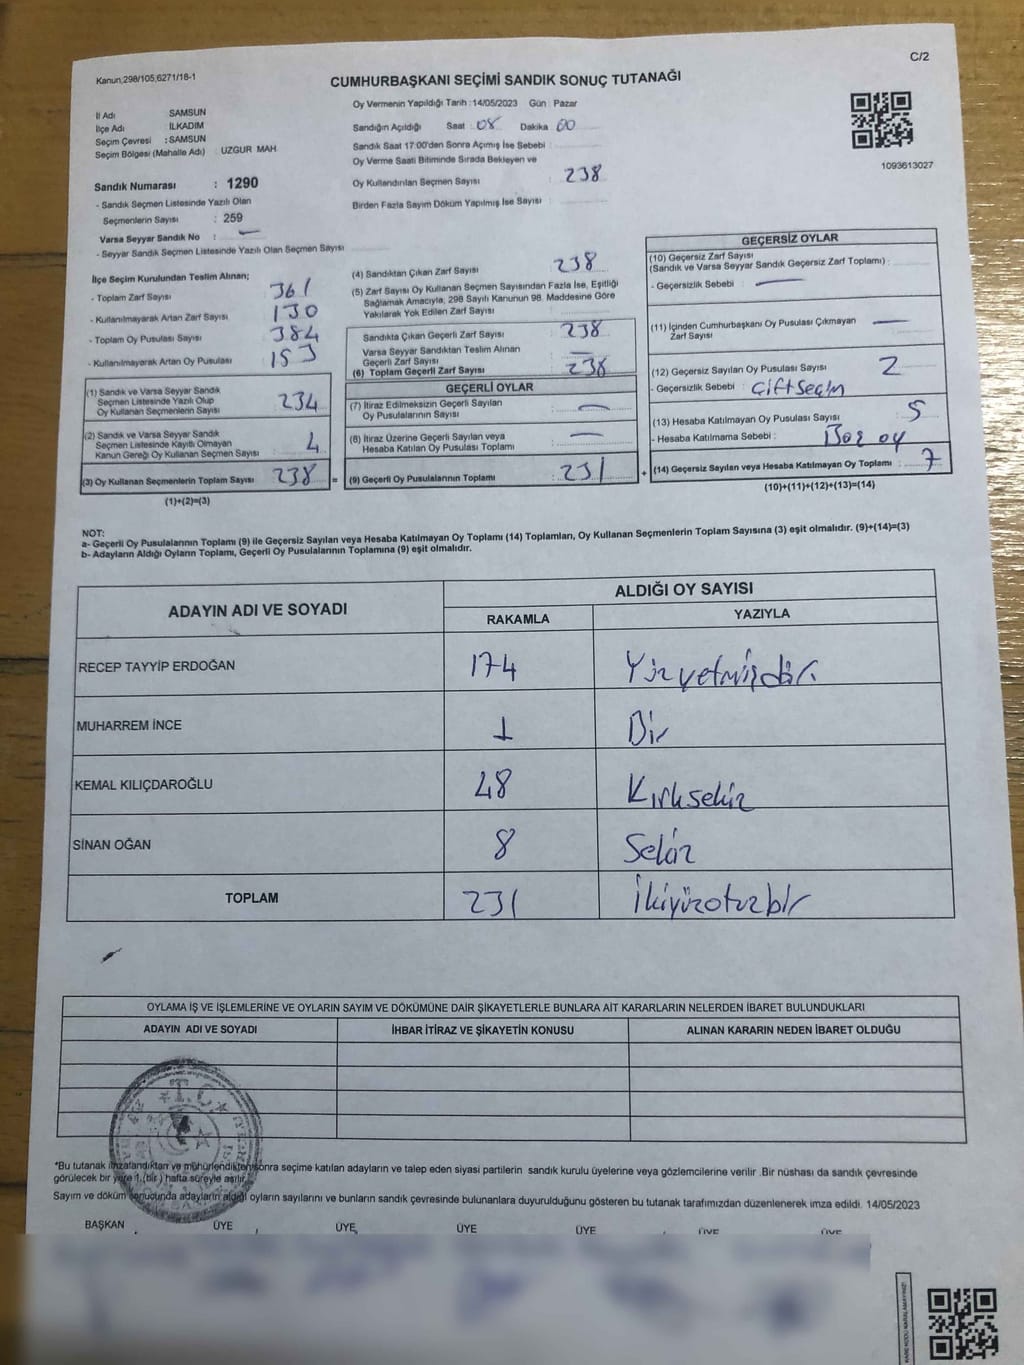 C/2
Kanun,298/105,6271/18-1
CUMHURBAŞKANI SEÇİMİ SANDIK SONUÇ TUTANAĞI
İl Adı SAMSUN
İlçe Adı : İLKADIM
Seçim Çevresi : SAMSUN
Seçim Bölgesi (Mahalle Adı) : UZGUR MAH.
Sandık Numarası : 1290
- Sandık Seçmen Listesinde Yazılı Olan
Seçmenlerin Sayısı : 259
Varsa Seyyar Sandık No : -
- Seyyar Sandık Seçmen Listesinde Yazılı Olan Seçmen Sayısı
Oy Vermenin Yapıldığı Tarih :14/05/2023 Gün : Pazar
Sandığın Açıldığı Saat : 08 Dakika 00
Sandık Saat 17:00'den Sonra Açımış İse Sebebi :
Oy Verme Saati Bitiminde Sırada Bekleyen ve
Oy Kullandırılan Seçmen Sayısı : 238
Birden Fazla Sayım Döküm Yapılmış İse Sayısı :
1093613027
İlçe Seçim Kurulundan Teslim Alınan;
- Toplam Zarf Sayısı 361
- Kullanılmayarak Artan Zarf Sayısı 130
- Toplam Oy Pusulası Sayısı 384
- Kullanılmayarak Artan Oy Pusulası 153
(1) Sandık ve Varsa Seyyar Sandık
Seçmen Listesinde Yazılı Olup
Oy Kullanan Seçmenlerin Sayısı 234
(2) Sandık ve Varsa Seyyar Sandık
Seçmen Listesinde Kayıtlı Olmayan
Kanun Gereği Oy Kullanan Seçmen Sayısı 4
(3) Oy Kullanan Seçmenlerin Toplam Sayısı 238 =
(1)+(2)=(3)
(4) Sandıktan Çıkan Zarf Sayısı 238
(5) Zarf Sayısı Oy Kullanan Seçmen Sayısından Fazla İse, Eşitliği
Sağlamak Amacıyla, 298 Sayılı Kanunun 98. Maddesine Göre
Yakılarak Yok Edilen Zarf Sayısı
Sandıkta Çıkan Geçerli Zarf Sayısı 238
Varsa Seyyar Sandıktan Teslim Alınan
Geçerli Zarf Sayısı -
(6) Toplam Geçerli Zarf Sayısı 238
GEÇERLİ OYLAR
(7) İtiraz Edilmeksizin Geçerli Sayılan
Oy Pusulalarının Sayısı -
(8) İtiraz Üzerine Geçerli Sayılan veya
Hesaba Katılan Oy Pusulası Toplamı -
(9) Geçerli Oy Pusulalarının Toplamı 231 +
GEÇERSİZ OYLAR
(10) Geçersiz Zarf Sayısı
(Sandık ve Varsa Seyyar Sandık Geçersiz Zarf Toplamı) :
- Geçersizlik Sebebi : -
(11) İçinden Cumhurbaşkanı Oy Pusulası Çıkmayan
Zarf Sayısı -
(12) Geçersiz Sayılan Oy Pusulası Sayısı 2
- Geçersizlik Sebebi : Çift Seçim
(13) Hesaba Katılmayan Oy Pusulası Sayısı 5
- Hesaba Katılmama Sebebi : Boş oy
(14) Geçersiz Sayılan veya Hesaba Katılmayan Oy Toplamı : 7
(10)+(11)+(12)+(13)=(14)
NOT:
a- Geçerli Oy Pusulalarının Toplamı (9) ile Geçersiz Sayılan veya Hesaba Katılmayan Oy Toplamı (14) Toplamları, Oy Kullanan Seçmenlerin Toplam Sayısına (3) eşit olmalıdır. (9)+(14)=(3)
b- Adayların Aldığı Oyların Toplamı, Geçerli Oy Pusulalarının Toplamına (9) eşit olmalıdır.
ADAYIN ADI VE SOYADI
ALDIĞI OY SAYISI
RAKAMLA YAZIYLA
RECEP TAYYİP ERDOĞAN 174 Yüzyetmişdört
MUHARREM İNCE 1 Bir
KEMAL KILIÇDAROĞLU 48 Kırksekiz
SİNAN OĞAN 8 Sekiz
TOPLAM 231 İkiyüzotuzbir
OYLAMA İŞ VE İŞLEMLERİNE VE OYLARIN SAYIM VE DÖKÜMÜNE DAİR ŞİKAYETLERLE BUNLARA AİT KARARLARIN NELERDEN İBARET BULUNDUKLARI
ADAYIN ADI VE SOYADI İHBAR İTİRAZ VE ŞİKAYETİN KONUSU ALINAN KARARIN NEDEN İBARET OLDUĞU
T.C.
*Bu tutanak imzalandıktan ve mühürlendikten sonra seçime katılan adayların ve talep eden siyasi partilerin sandık kurulu üyelerine veya gözlemcilerine verilir .Bir nüshası da sandık çevresinde
görülecek bir yere 1.(bir ) hafta süreyle asılır.
Sayım ve döküm sonucunda adayların aldığı oyların sayılarını ve bunların sandık çevresinde bulunanlara duyurulduğunu gösteren bu tutanak tarafımızdan düzenlenerek imza edildi. 14/05/2023
BAŞKAN ÜYE ÜYE ÜYE ÜYE ÜYE ÜYE